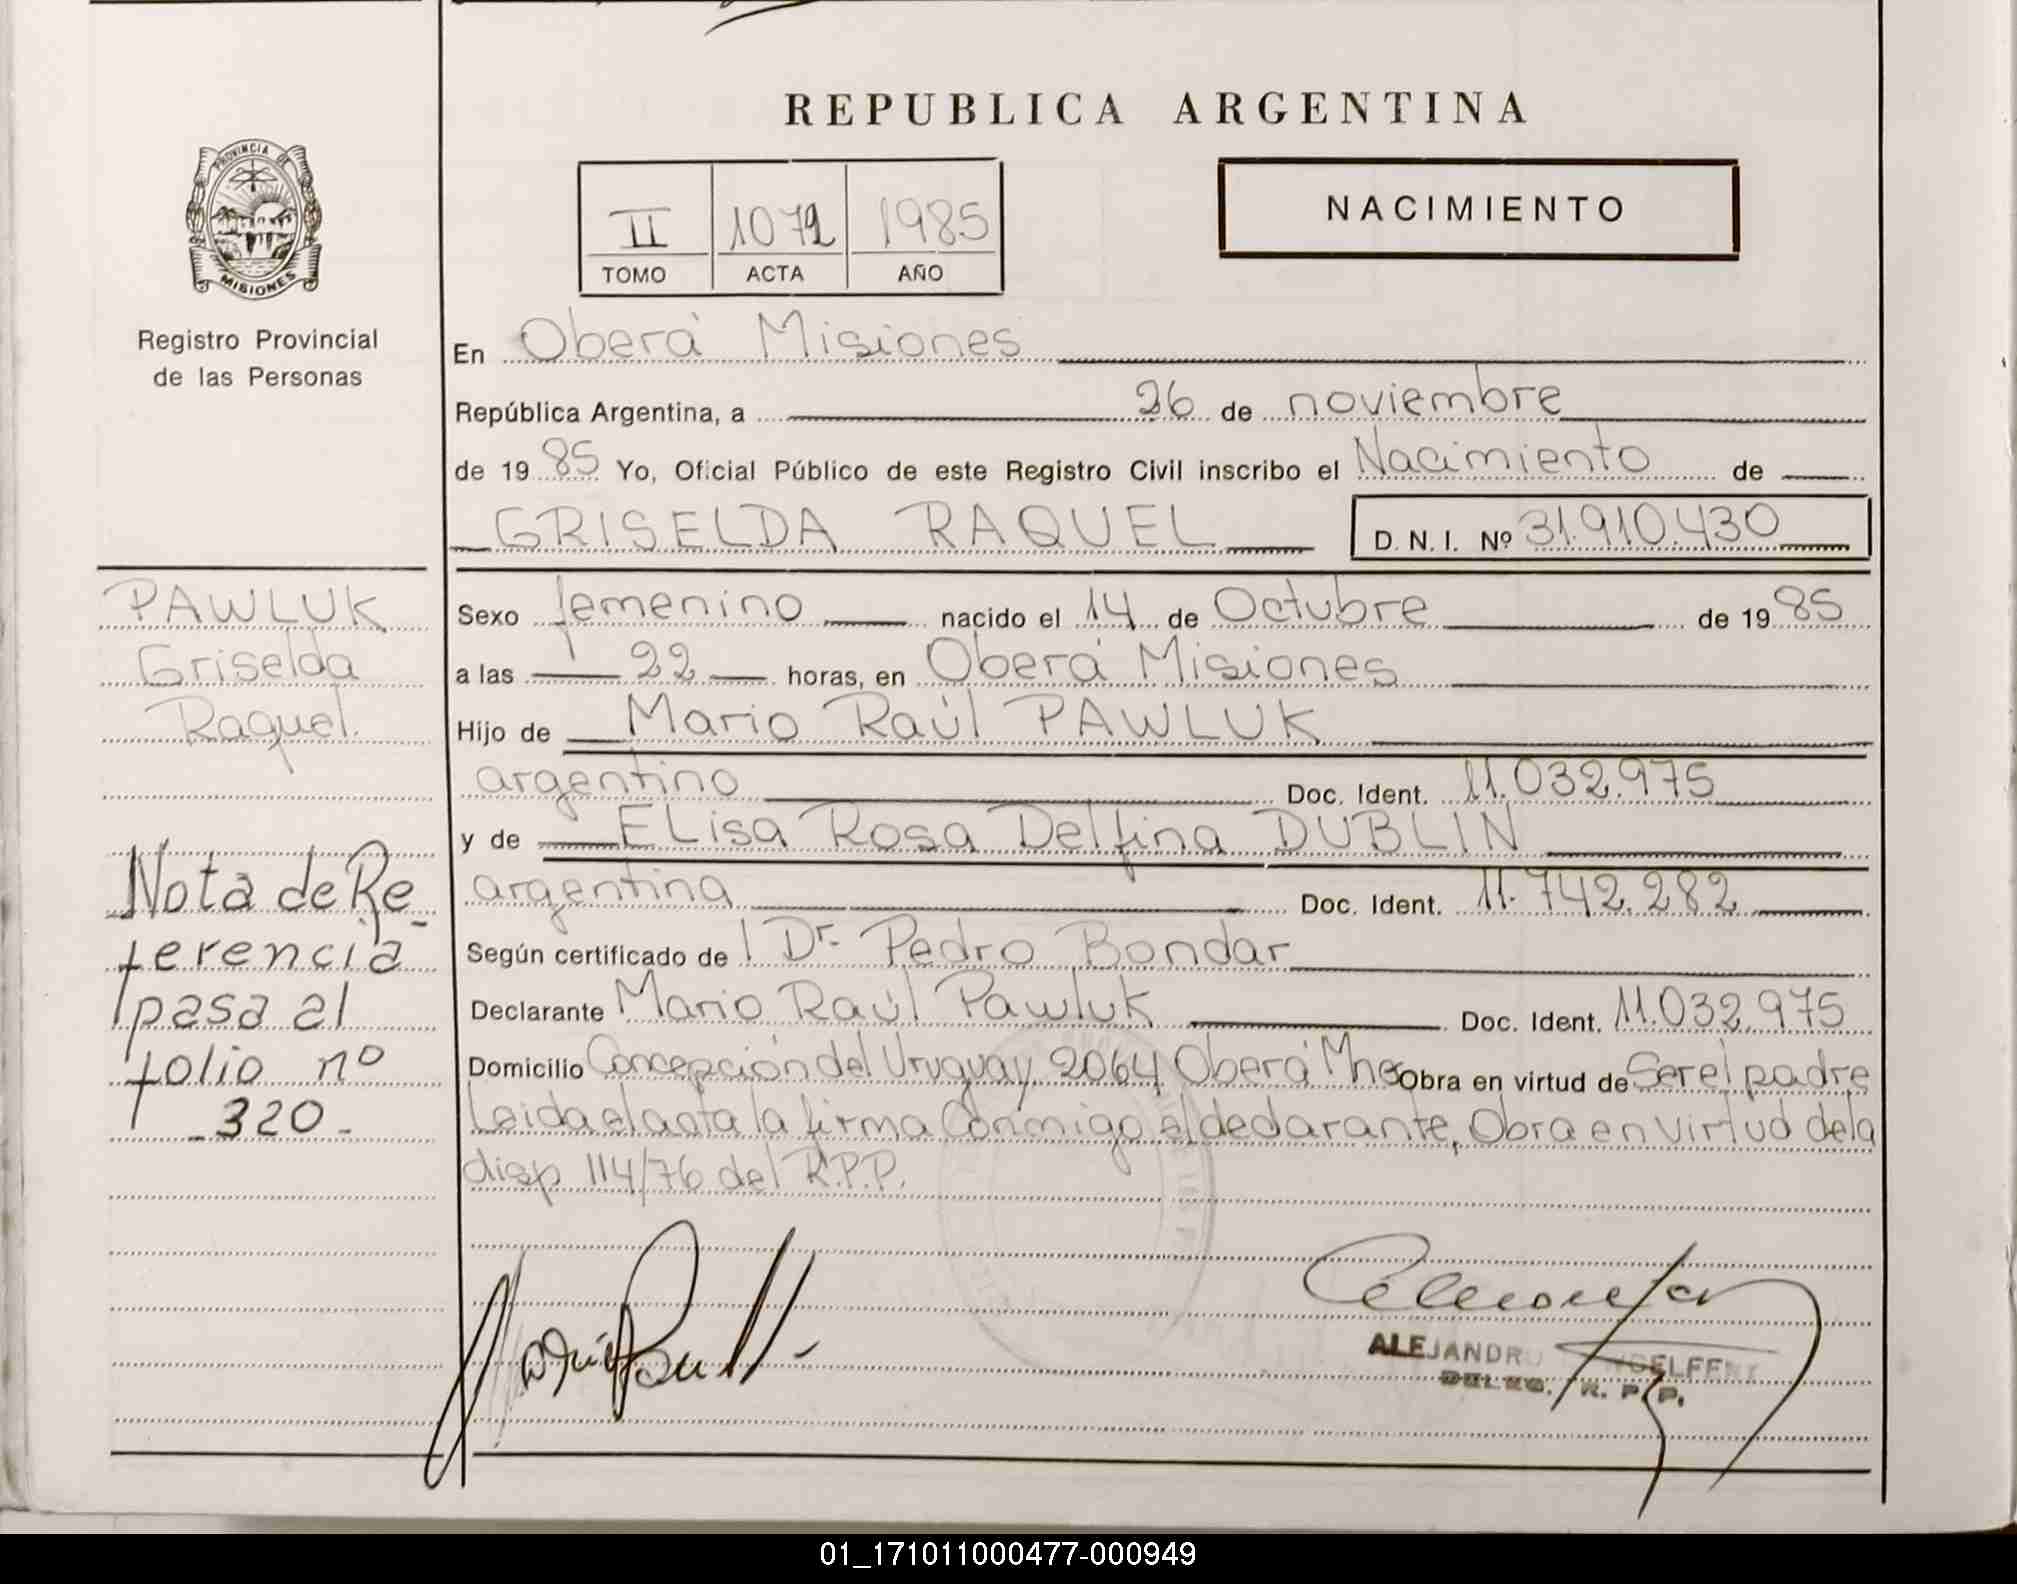 REPUBLICA ARGENTINA
PROVINCIA DE
MISIONES
Registro Provincial
de las Personas
II 1072 1985
TOMO ACTA AÑO
NACIMIENTO
En Oberá Misiones
República Argentina, a 26 de noviembre
de 19 85 Yo, Oficial Público de este Registro Civil inscribo el Nacimiento de
GRISELDA RAQUEL D. N. I. Nº 31.910.430
PAWLUK
Griselda
Raquel.
Sexo femenino nacido el 14 de Octubre de 19 85
a las 22 horas, en Oberá Misiones
Hijo de Mario Raúl PAWLUK
argentino Doc. Ident. 11.032.975
y de ELisa Rosa Delfina DUBLIN
argentina Doc. Ident. 11.742.282
Según certificado de l Dr. Pedro Bondar
Declarante Mario Raúl Pawluk Doc. Ident. 11.032.975
Domicilio Concepción del Uruguay 2064 Oberá Mnes Obra en virtud de Ser el padre
Leida el acta la firma Conmigo el declarante, Obra en virtud de la
disp 114/76 del R.P.P.
Nota de Re
ferencia
pasa al
folio nº
- 320 -
ALEJANDRO
DELEG. R. P. P.
01_171011000477-000949